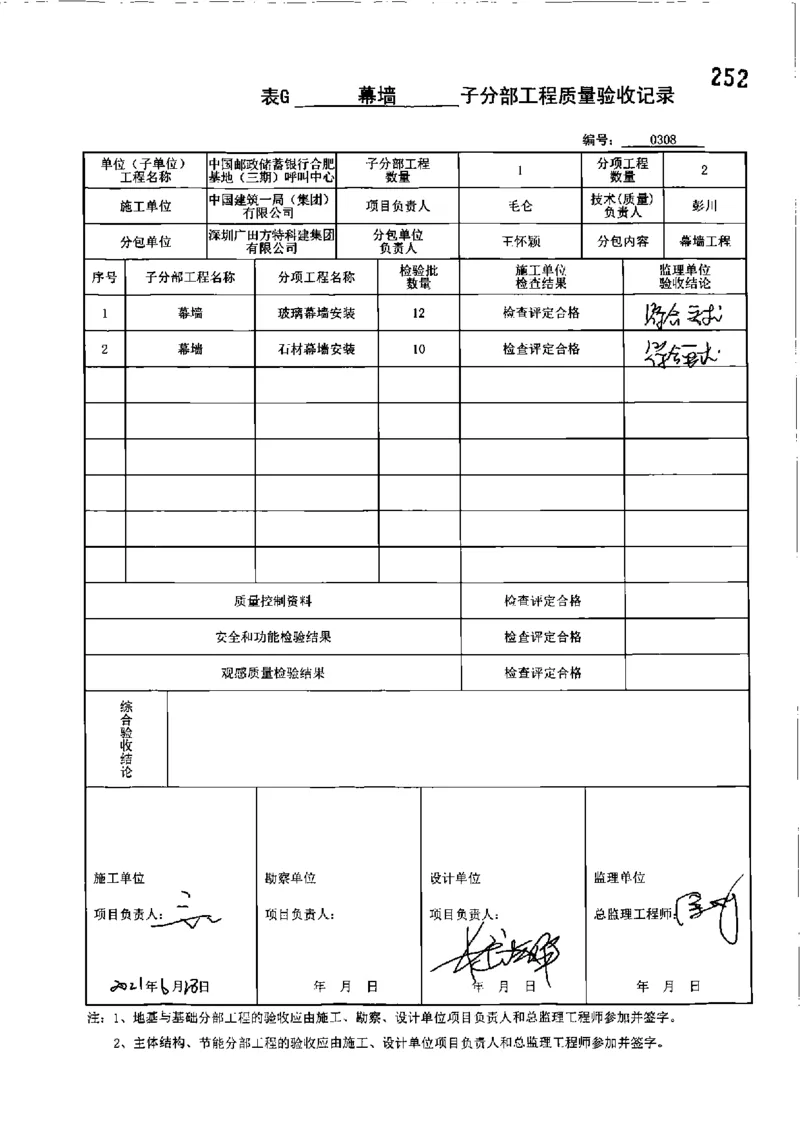 252
表G 幕墙 子分部工程质量验收记录
编号： 0308
单位（子单位）工程名称 中国邮政储蓄银行合肥基地（三期）呼叫中心 子分部工程数量 1 分项工程数量 2
施工单位 中国建筑一局（集团）有限公司 项目负责人 毛仑 技术(质量)负责人 彭川
分包单位 深圳广田方特科建集团有限公司 分包单位负责人 王怀颖 分包内容 幕墙工程
序号 子分部工程名称 分项工程名称 检验批数量 施工单位检查结果 监理单位验收结论
1 幕墙 玻璃幕墙安装 12 检查评定合格 符合要求
2 幕墙 石材幕墙安装 10 检查评定合格 符合要求
质量控制资料 检查评定合格
安全和功能检验结果 检查评定合格
观感质量检验结果 检查评定合格
综合验收结论
施工单位 勘察单位 设计单位 监理单位
项目负责人： 项目负责人： 项目负责人： 总监理工程师：
2021年6月 日 年 月 日 年 月 日 年 月 日
注：1、地基与基础分部工程的验收应由施工、勘察、设计单位项目负责人和总监理工程师参加并签字。
2、主体结构、节能分部工程的验收应由施工、设计单位项目负责人和总监理工程师参加并签字。